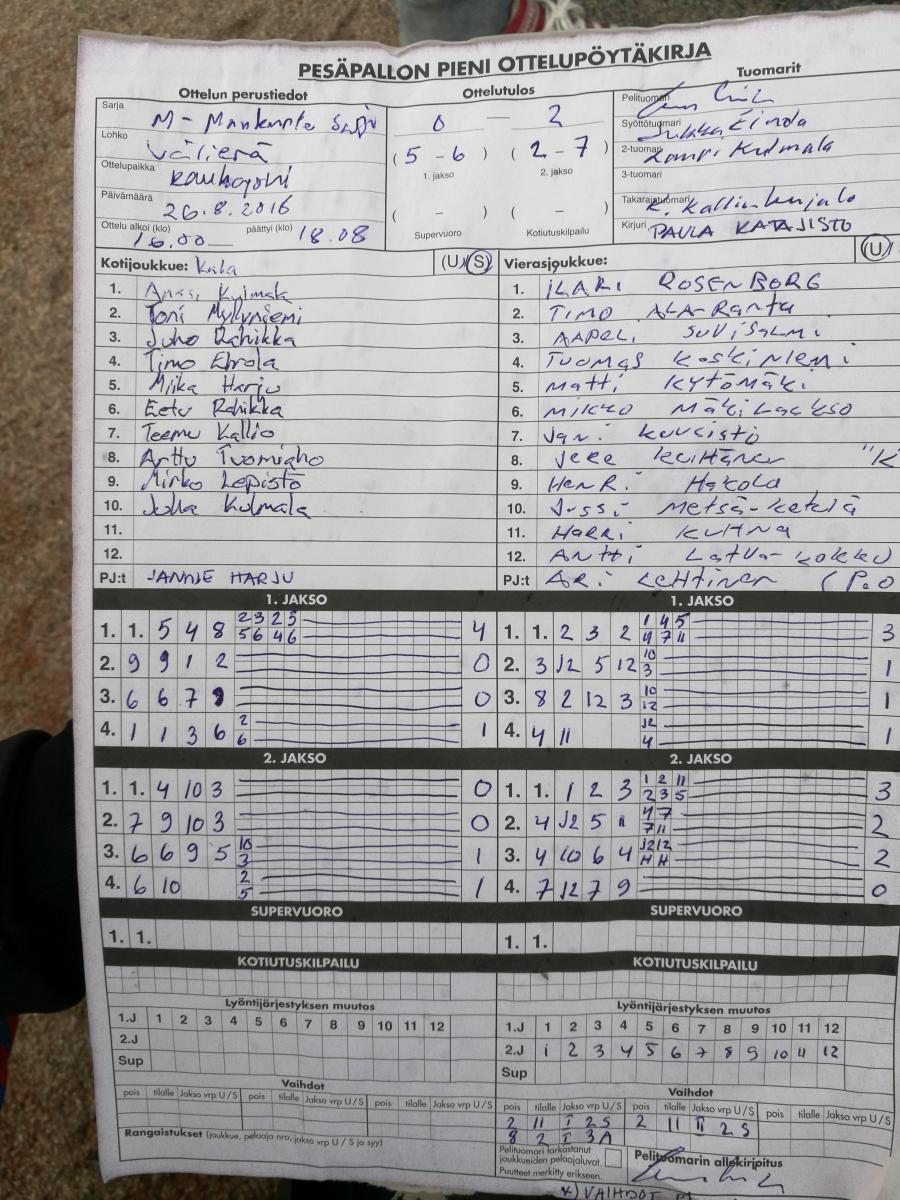 PESÄPALLON PIENI OTTELUPÖYTÄKIRJA
Ottelun perustiedot
Ottelutulos
Tuomarit
Sarja M-
0 — 2
Pelituomari
Lohko Välierä
( 5 - 6 ) ( 2 - 7 )
1. jakso 2. jakso
Syöttötuomari Jukka
Ottelupaikka
2-tuomari Kulmala
3-tuomari
Päivämäärä 26.8.2016
( - ) ( - )
Supervuoro Kotiutuskilpailu
Takarajatuomari K.
Ottelu alkoi (klo) 16.00 päättyi (klo) 18.08
Kirjuri PAULA KATAJISTO
Kotijoukkue: (U) (S)
1. Kulmala
2. Toni Myllyniemi
3. Juho Rahikka
4. Timo
5. Miika Harju
6. Eetu Rahikka
7. Teemu Kallio
8. Arttu
9. Mirko Lepistö
10. Kulmala
11.
12.
PJ:t JANNE HARJU
Vierasjoukkue: (U)
1. ILARI ROSENBORG
2. TIMO ALA-RANTA
3. AAPELI SUVISALMI
4. TUOMAS KOSKINIEMI
5. MATTI KYTÖMÄKI
6. MIKKO MÄKILAAKSO
7. JANI
8. JERE "K
9. HENRI HAKOLA
10. JUSSI METSÄ-KETELÄ
11. HARRI KUHNA
12. ANTTI LATVA-
PJ:t ARI LEHTINEN (P.O
1. JAKSO
1. 1. 5 4 8 2 3 2 5 4
5 6 4 6
2. 9 9 1 2 0
3. 6 6 7 0
4. 1 1 3 6 2 1
6
1. JAKSO
1. 1. 2 3 2 1 4 5 3
4 7 11
2. 3 12 5 12 10 1
3
3. 8 2 12 3 10 1
12
4. 4 11 12 1
4
2. JAKSO
1. 1. 4 10 3 0
2. 7 9 10 3 0
3. 6 6 9 5 10 1
3
4. 6 10 2 1
5
2. JAKSO
1. 1. 1 2 3 1 2 11 3
2 3 5
2. 4 12 5 11 4 7 2
7 11
3. 4 10 6 4 12 12 2
H H
4. 7 12 7 9 0
SUPERVUORO
1. 1.
SUPERVUORO
1. 1.
KOTIUTUSKILPAILU
KOTIUTUSKILPAILU
Lyöntijärjestyksen muutos
1.J 1 2 3 4 5 6 7 8 9 10 11 12
2.J
Sup
Lyöntijärjestyksen muutos
1.J 1 2 3 4 5 6 7 8 9 10 11 12
2.J 1 2 3 4 5 6 7 8 9 10 11 12
Sup
Vaihdot
pois tilalle Jakso vrp U/S pois tilalle Jakso vrp U/S pois tilalle Jakso vrp U/S
Rangaistukset (joukkue, pelaaja nro, jakso vrp U / S ja syy)
Vaihdot
pois tilalle Jakso vrp U/S pois tilalle Jakso vrp U/S pois tilalle Jakso vrp U/S
2 11 I 2 S 2 11 II 2 S
8 2 I 3 A
Pelituomari tarkastanut
joukkueiden pelaajaluvat.
Puutteet merkitty erikseen.
Pelituomarin allekirjoitus
VAIHDOT